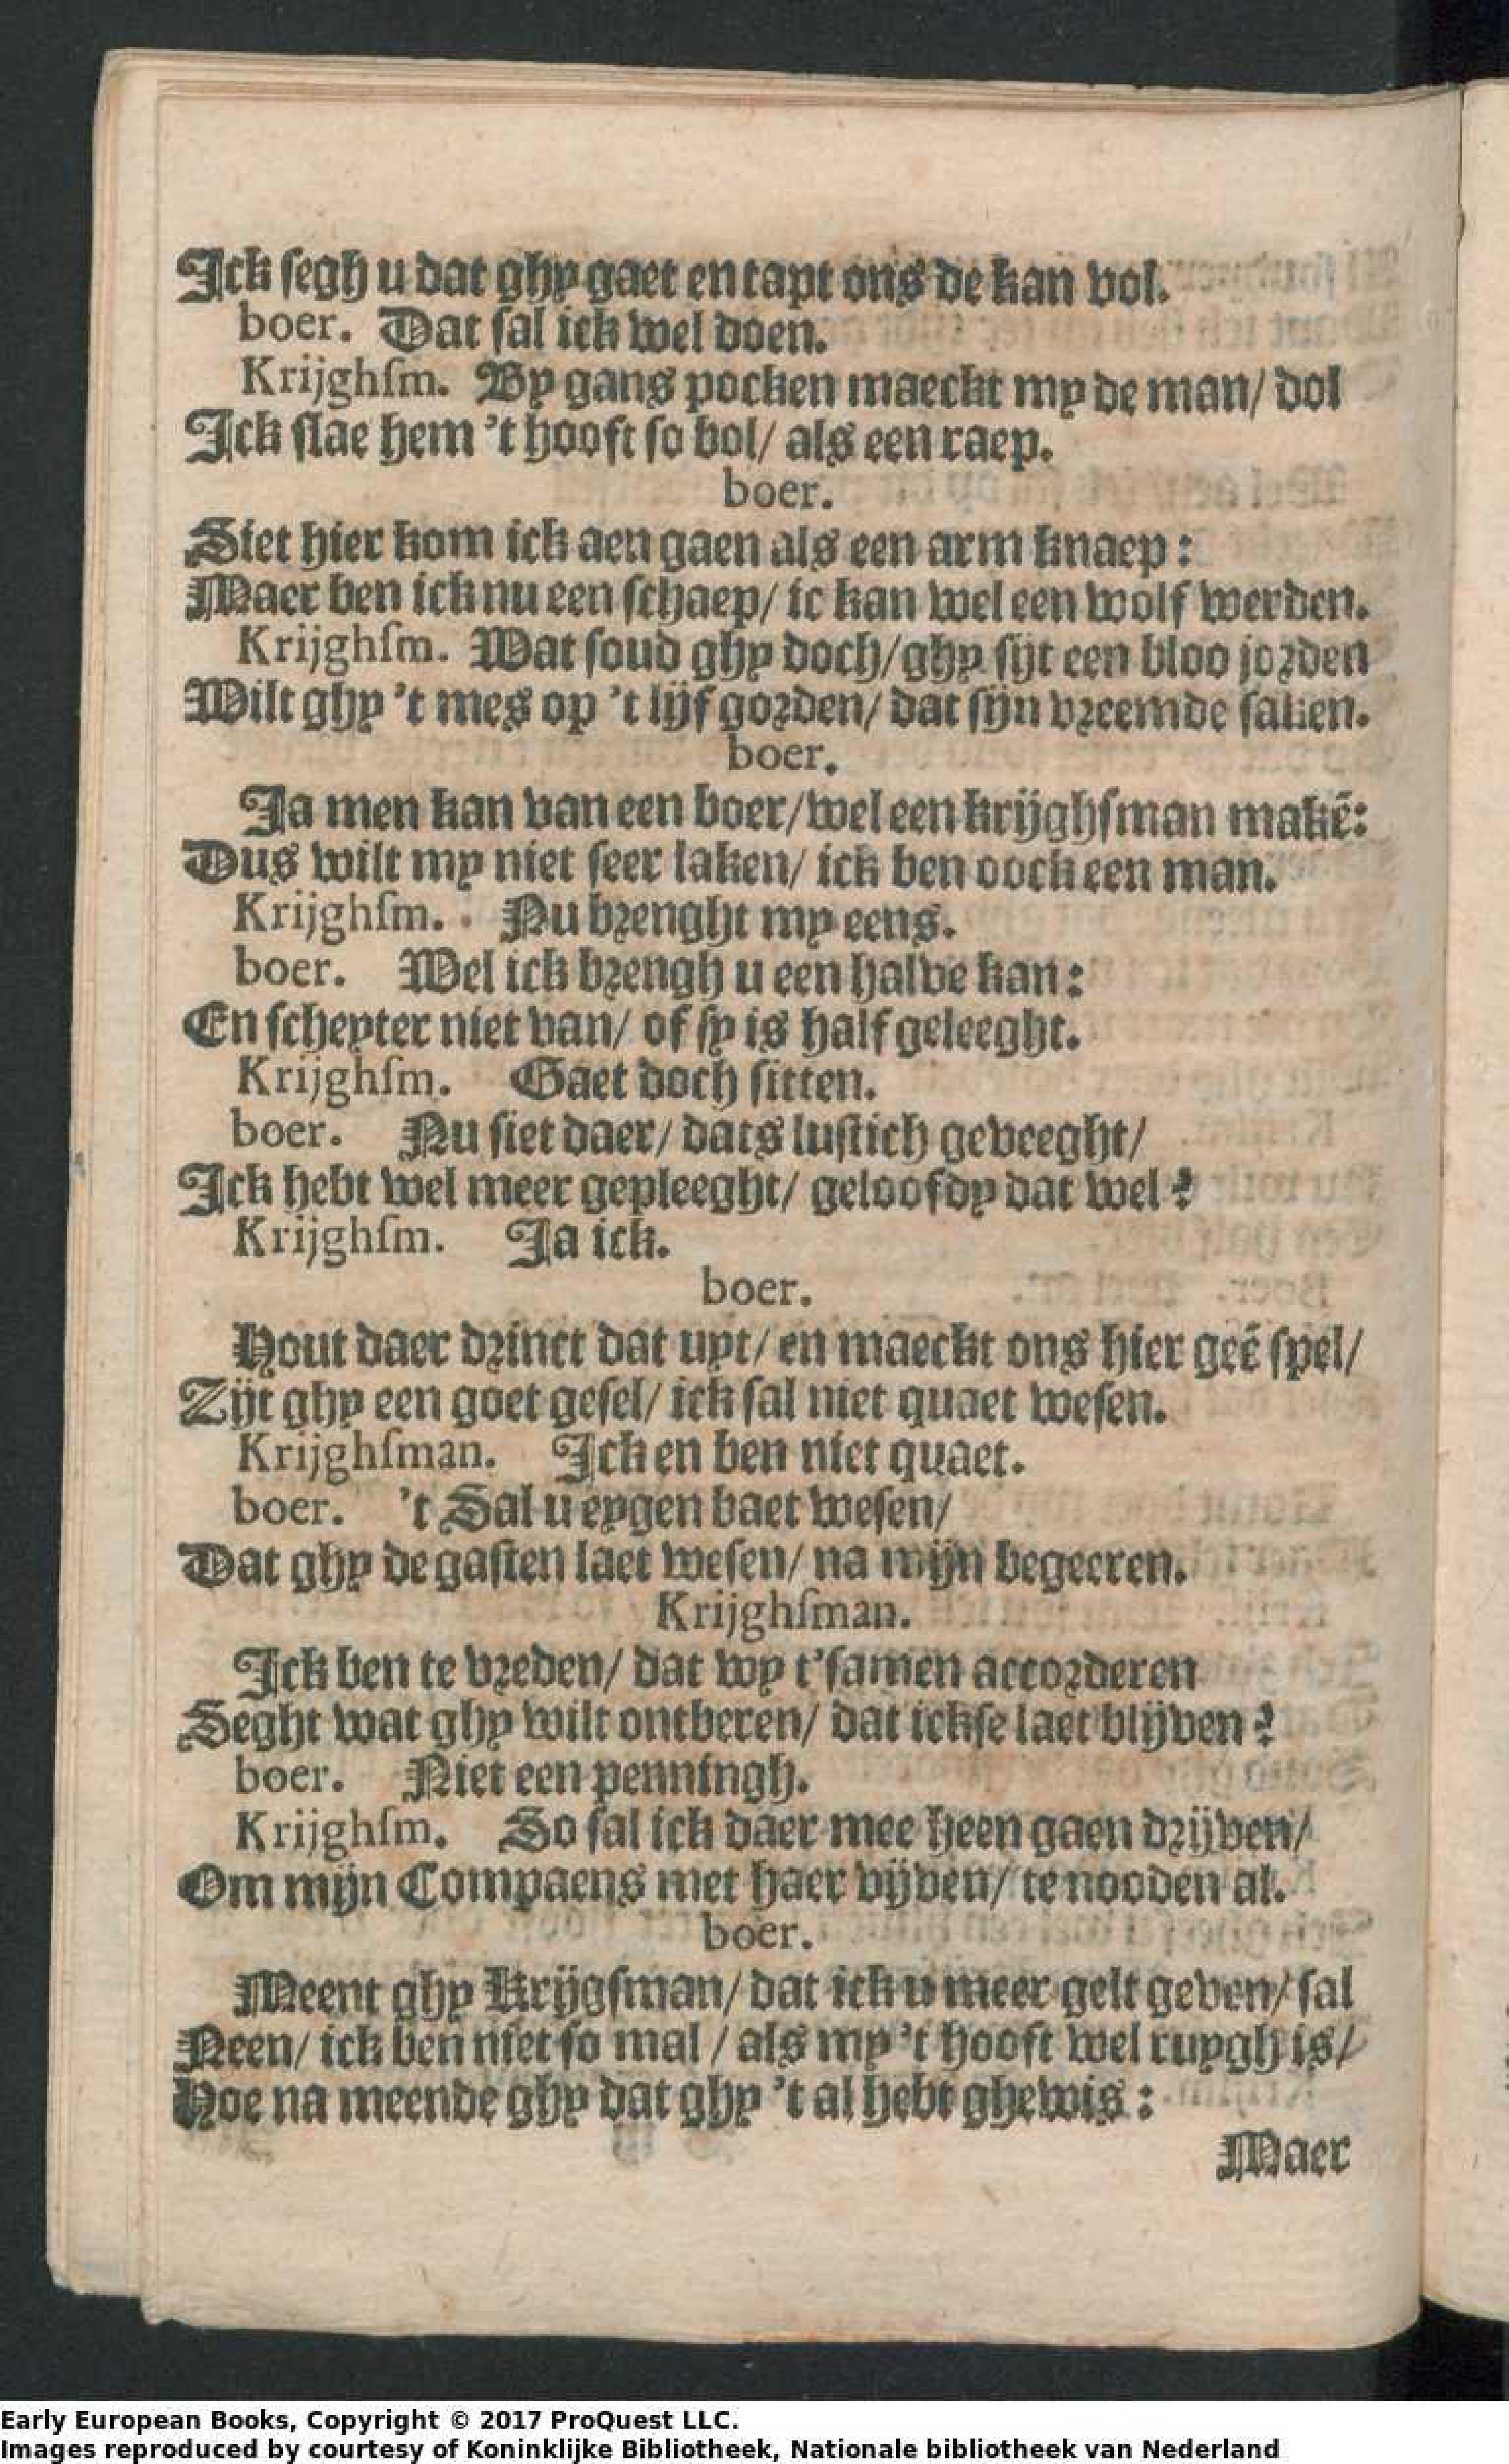 Ick ſegh u dat ghy gaet en tapt ons de kan vol.
boer. Dat ſal ick wel doen.
Krijghſm. By gans pocken maeckt my de man/ dol
Ick ſlae hem 't hooft ſo bol/ als een raep.
boer.
Siet hier kom ick aen gaen als een arm knaep:
Maer ben ick nu een ſchaep/ ic kan wel een wolf werden.
Krijghſm. Wat ſoud ghy doch/ ghy ſijt een bloo jorden
Wilt ghy 't mes op 't lijf gorden/ dat ſijn vreemde ſaken.
boer.
Ja men kan van een boer/ wel een krijghſman makē:
Dus wilt my niet ſeer laken/ ick ben oock een man.
Krijghſm. Nu brenght my eens.
boer. Wel ick brengh u een halve kan:
En ſchepter niet van/ of ſy is half geleeght.
Krijghſm. Gaet doch ſitten.
boer. Nu ſiet daer/ dats luſtich geveeght/
Ick hebt wel meer gepleeght/ geloofdy dat wel?
Krijghſm. Ja ick.
boer.
Hout daer drinct dat uyt/ en maeckt ons hier geē ſpel/
Zijt ghy een goet geſel/ ick ſal niet quaet weſen.
Krijghſman. Ick en ben niet quaet.
boer. 't Sal u eygen baet weſen/
Dat ghy de gaſten laet weſen/ na mijn begeeren.
Krijghſman.
Ick ben te vreden/ dat wy t'ſamen accorderen
Seght wat ghy wilt ontberen/ dat ickſe laet blijven?
boer. Niet een penningh.
Krijghſm. So ſal ick daer mee heen gaen drijven/
Om mijn Compaens met haer vijven/ te nooden al.
boer.
Meent ghy Krijgſman/ dat ick u meer gelt geven/ ſal
Neen/ ick ben niet ſo mal / als my 't hooft wel ruygh is/
Hoe na meende ghy dat ghy 't al hebt ghewis:
Maer
Early European Books, Copyright © 2017 ProQuest LLC.
Images reproduced by courtesy of Koninklijke Bibliotheek, Nationale bibliotheek van Nederland